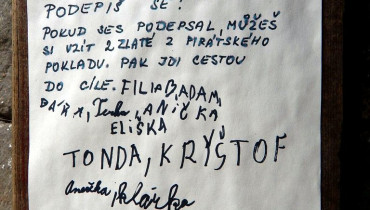 PODEPIŠ SE!
POKUD JES PODEPSAL, MŮŽEŠ
SI VZÍT 2 ZLATÉ Z PIRÁTSKÉHO
POKLADU. PAK JDI CESTOU
DO CÍLE. FILIP, ADAM,
BÁRA, Terka, ANIČKA
ELIŠKA
TONDA, KRYŠTOF
Anežka, Klárka